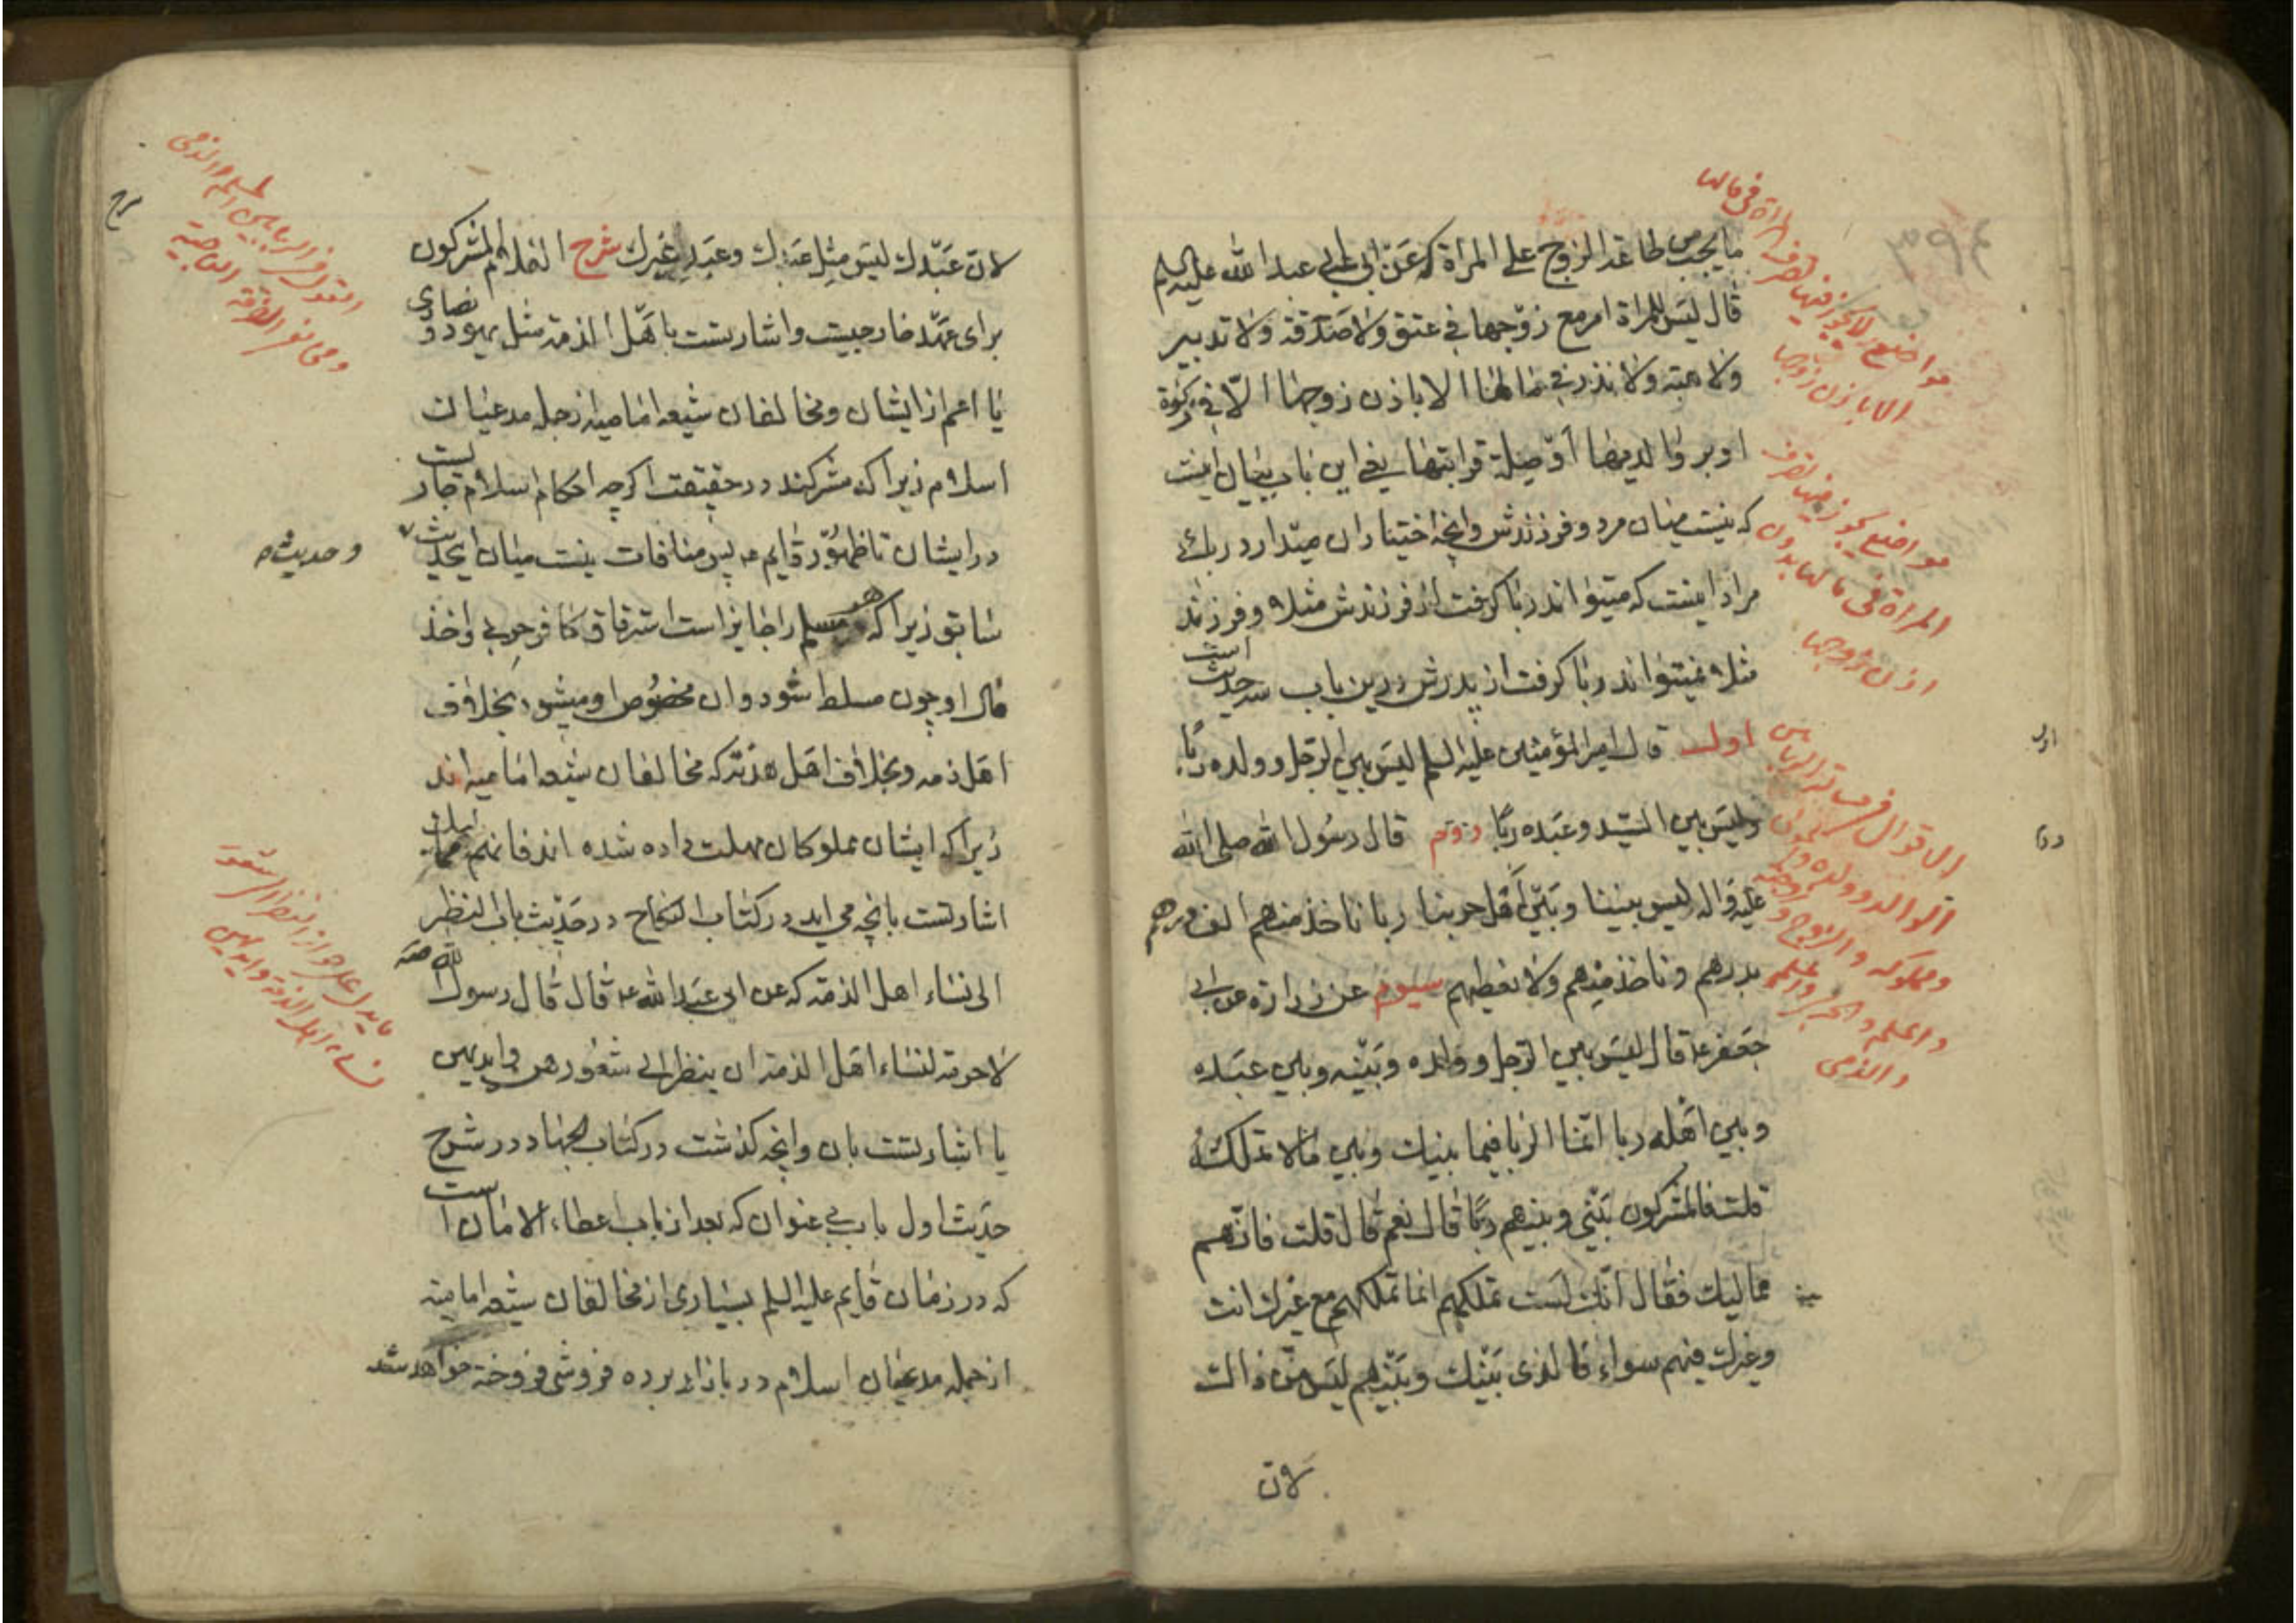 ما يجب من طاعة الزوج على المرأة كه عن ابى عبد الله عليه السلم
قال ليس للمرأة امر مع زوجها في عتق ولا صدقة ولا تدبير
ولا هبة ولا نذر في مالها الا باذن زوجها الا في زكوة
او بر والديها او صلة قرابتها يعنى اين باب بيان اينست
كه نيست ميان مرد و فرزندش و انچه اختيار ان ميدارد ربائى
مراد اينست كه ميتواند ربا كرفت از فرزندش مثلا و فرزند
مثلا نميتواند ربا كرفت از پدرش درين باب سه حديث است
اول قال امير المؤمنين عليه السلم ليس بين الرجل و ولده ربًا
وليس بين السيد وعبده ربًا دوم قال رسول الله صلى الله
عليه واله ليس بيننا وبين اهل حربنا ربا ناخذ منهم الف درهم
بدرهم وناخذ منهم ولا نعطيهم سيوم عن زرارة عن ابى
جعفر ع قال ليس بين الرجل وولده وبينه وبين عبده
وبين اهله ربا انما الربا فيما بينك وبين ما لا تملك
قلت فالمشركون بينى وبينهم ربًا قال نعم قال قلت فانهم
مماليك فقال انك لست تملكهم انما تملكهم مع غيرك انت
وغيرك فيهم سواء فالذى بينك وبينهم ليس من ذالك
لان
مواضع لا يجوز فيها تصرف المرأة في مالها
الا باذن زوجها
مواضع يجوز فيها تصرف
المرأة في مالها بدون
اذن زوجها
الوالد و ولده و
ومملوكه والزوج و زوجته
والمسلم والحربى
والذمى
اول
دوم
٣٩٤
لان عبدك ليس مثل عبدك وعبد غيرك شرح الف لام المشركون
براى عهد خارجيست و اشارتست باهل الذمة مثل يهود و نصارى
يا اعم از ايشان و مخالفان شيعه اماميه از جمله مدعيان
اسلام زيرا كه مشركند در حقيقت اكرچه احكام اسلام جاريست
در ايشان تا ظهور قايم ع پس منافات نيست ميان اين حديث
و حديث
سابق زيرا كه هر مسلم را جايز است استرقاق كافر حربى و اخذ
مال او چون مسلط شود و ان مخصوص او ميشود بخلاف
اهل ذمه و بخلاف اهل هدنه كه مخالفان شيعه اماميه اند
زيرا كه ايشان مملوكان مهلت داده شده اند فانهم مماليك
اشارتست بانچه مى ايد در كتاب النكاح در حديث باب النظر
الى نساء اهل الذمة كه عن ابى عبد الله ع قال قال رسول الله ص
لا حرمة لنساء اهل الذمة ان ينظر الى شعورهن وايديهن
يا اشارتست بان وانچه كذشت در كتاب الجهاد در شرح
حديث اول باب بى عنوان كه بعد از باب اعطاء الامان است
كه در زمان قايم عليه السلم بسيارى از مخالفان شيعه اماميه
از جمله مدعيان اسلام در بازار برده فروشى فروخته خواهد شد
شرح
القول في الربا بين المسلم والذمى
وفى نفى الفرقة الناجية
ما يدل على جواز النظر الى شعور
نساء اهل الذمة وايديهن